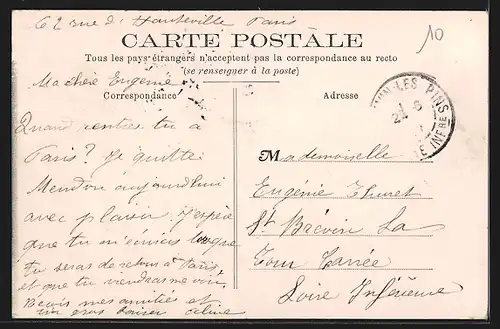 62 rue d'Hauteville Paris
10
CARTE POSTALE
Tous les pays étrangers n'acceptent pas la correspondance au recto
(se renseigner à la poste)
Ma chère Eugénie
Correspondance
Quand rentres tu à
Paris? Je quitte
Meudon aujourdhui
avec plaisir j'espère
que tu m'écriras lorsque
tu seras de retour à Paris
et que tu viendras me voir
Reçois mes amitiés et
un gros baiser Céline
Adresse
LES PINS
Mademoiselle
Eugénie Thuret
St Brévin La
Tour Carrée
Loire Inférieure